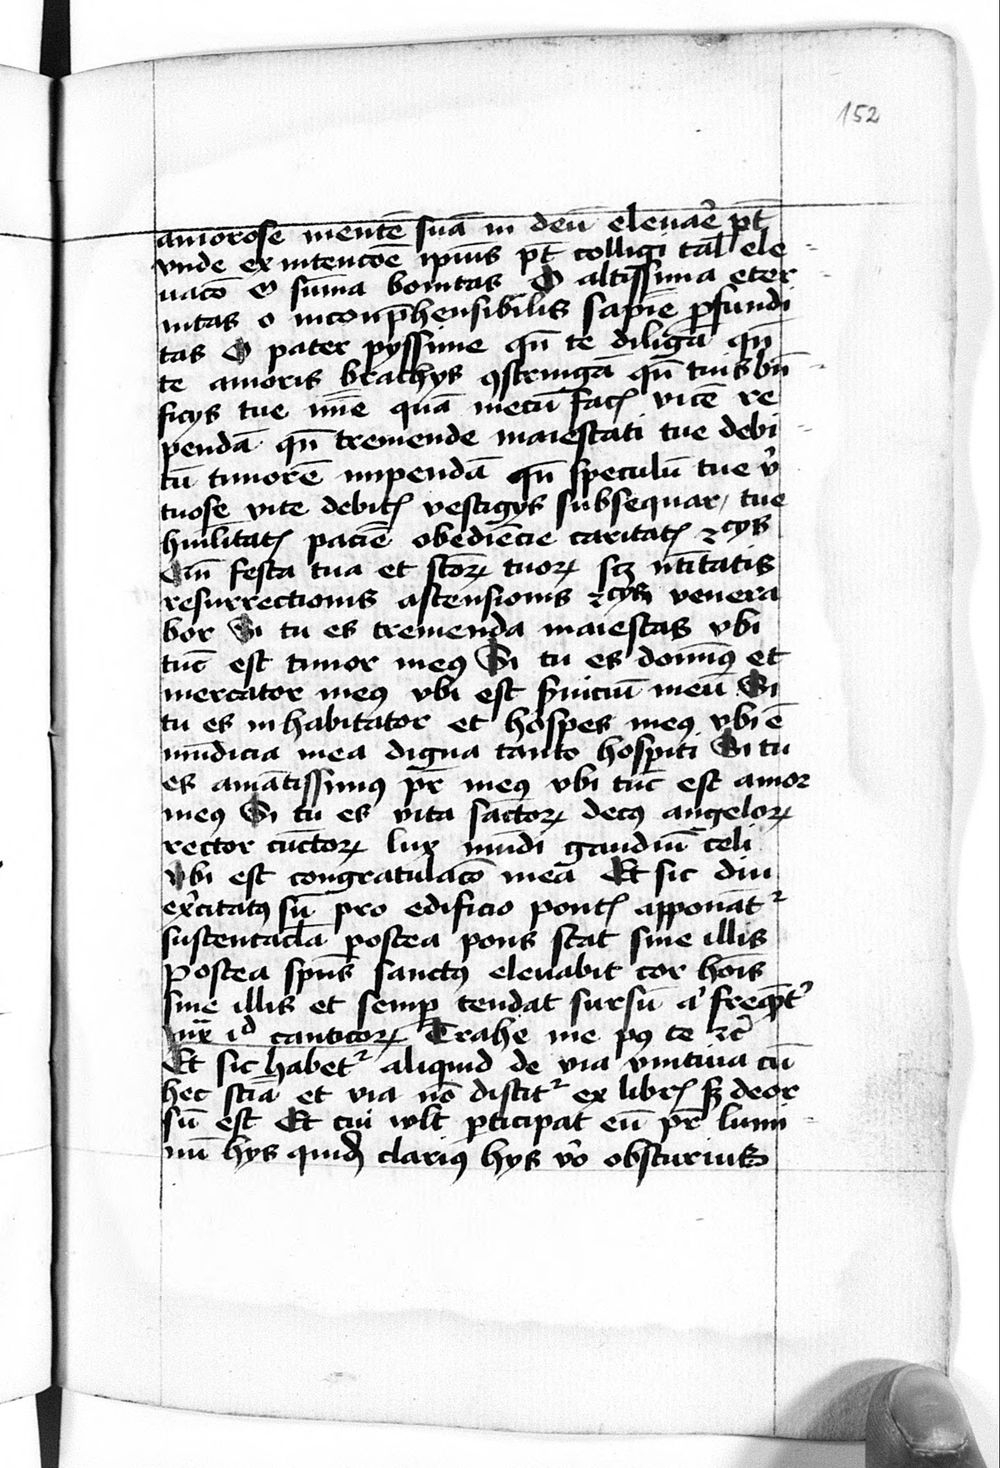 152
amorose mentē suā in deū eleuar̄e pt̄
vnde ex intencōe ipiūs pt̄ colligi tal̄ ele
uacō O sūma bonitas O altissima eter
nitas o inconp̄hensibilis sapiē ꝓfundi
tas O pater pyssime qn̄ te diligā qn̄
te amoris brachys ꝯstringā qn̄ tuis bn̄
ficys tue īm̄e quā mecū facꝭ vicē re
pendā qn̄ tremende maiestati tue debi
tū timorē impendā qn̄ speculū tue v̓
tuose vite debitꝭ vestigys subsequar, tue
hūilitatꝭ paciē obediēcie caritatꝭ ⁊cys
Qn̄ festa tua et scōꝝ tuoꝝ scꝫ n̄titatis
resurrectionis ascensionis ⁊cys venera
bor Si tu es tremenda maiestas vbi
tūc est timor meꝰ Si tu es domīꝰ et
mercator meꝰ vbi est s̓uiciū meū Si
tu es inhabitator et hospes meꝰ vbi ē
mūdicia mea digna tanto hospiti Si tu
es amātissimꝰ pr̄ meꝰ vbi tūc est amor
meꝰ Si tu es vita sāctoꝝ decꝰ angeloꝝ
rector cūctoꝝ lux mūdi gaudiū celi
vbi est congratulacō mea Et sic diu
ex̓citatꝰ sū pro edificio pontꝭ apponāt᷑
sustentacl̄a postea pons stat sine illis
Postea spūs sanctꝰ eleuabit cor hoīs
sine illis et semꝑ tendat sursū
iux̄ id canticoꝝ Trahe me pꝰ te ⁊c̓
Et sic habet᷑ aliquid de via vnitiua cū
hec sciā et via nō discit᷑ ex librꝭ sꝫ deor
sū est Et cui wlt ꝑticipat eū pr̄ lumi
nū hys quid̄ clariꝰ hys v̓o obscurius